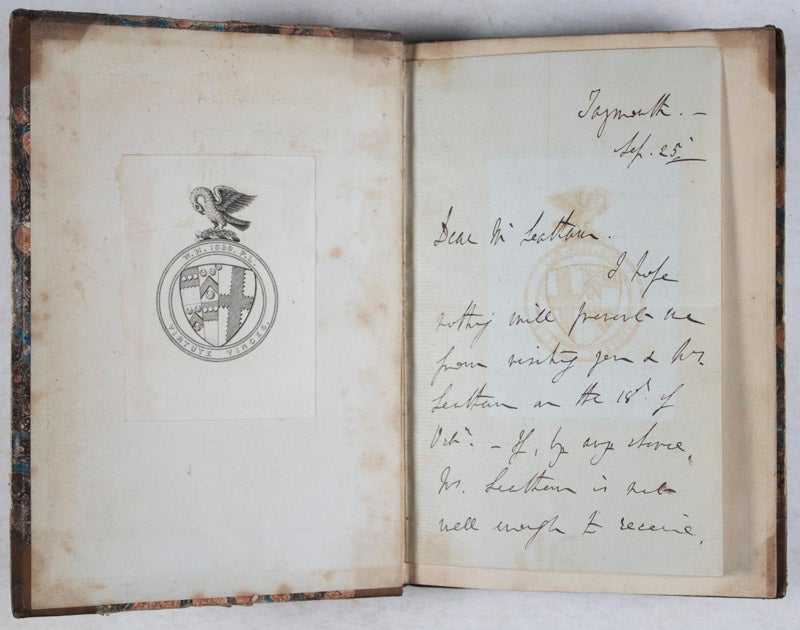 W.H. 1839. F.L.
VIRTUTE VINCES.
Taymouth. –
Sep. 25
Dear Mr Leatham.
I hope
nothing will prevent me
from visiting you & Mrs
Leatham on the 18th of
Octr. – If, by any chance,
Mrs. Leatham is not
well enough to receive,